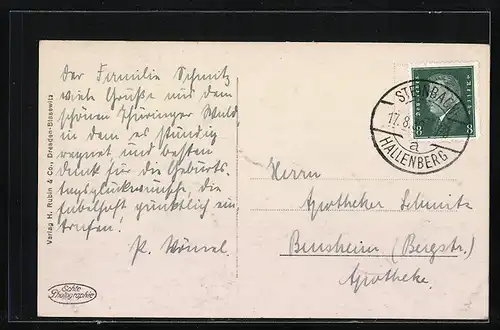 Der Familie Schmitz
viele Grüße aus dem
schönen Thüringer Wald,
in dem es ständig
regnet und besten
Dank für die Geburts-
tagsglückwünsche, die
fabelhaft pünktlich ein-
trafen!
P.
Verlag H. Rubin & Co., Dresden-Blasewitz
Echte
Photographie
DEUTSCHES REICH
8 8
STEINBACH
17.8.
a
HALLENBERG
Herrn
Apotheker Schmitz
Bensheim (Bergstr.)
Apotheke.